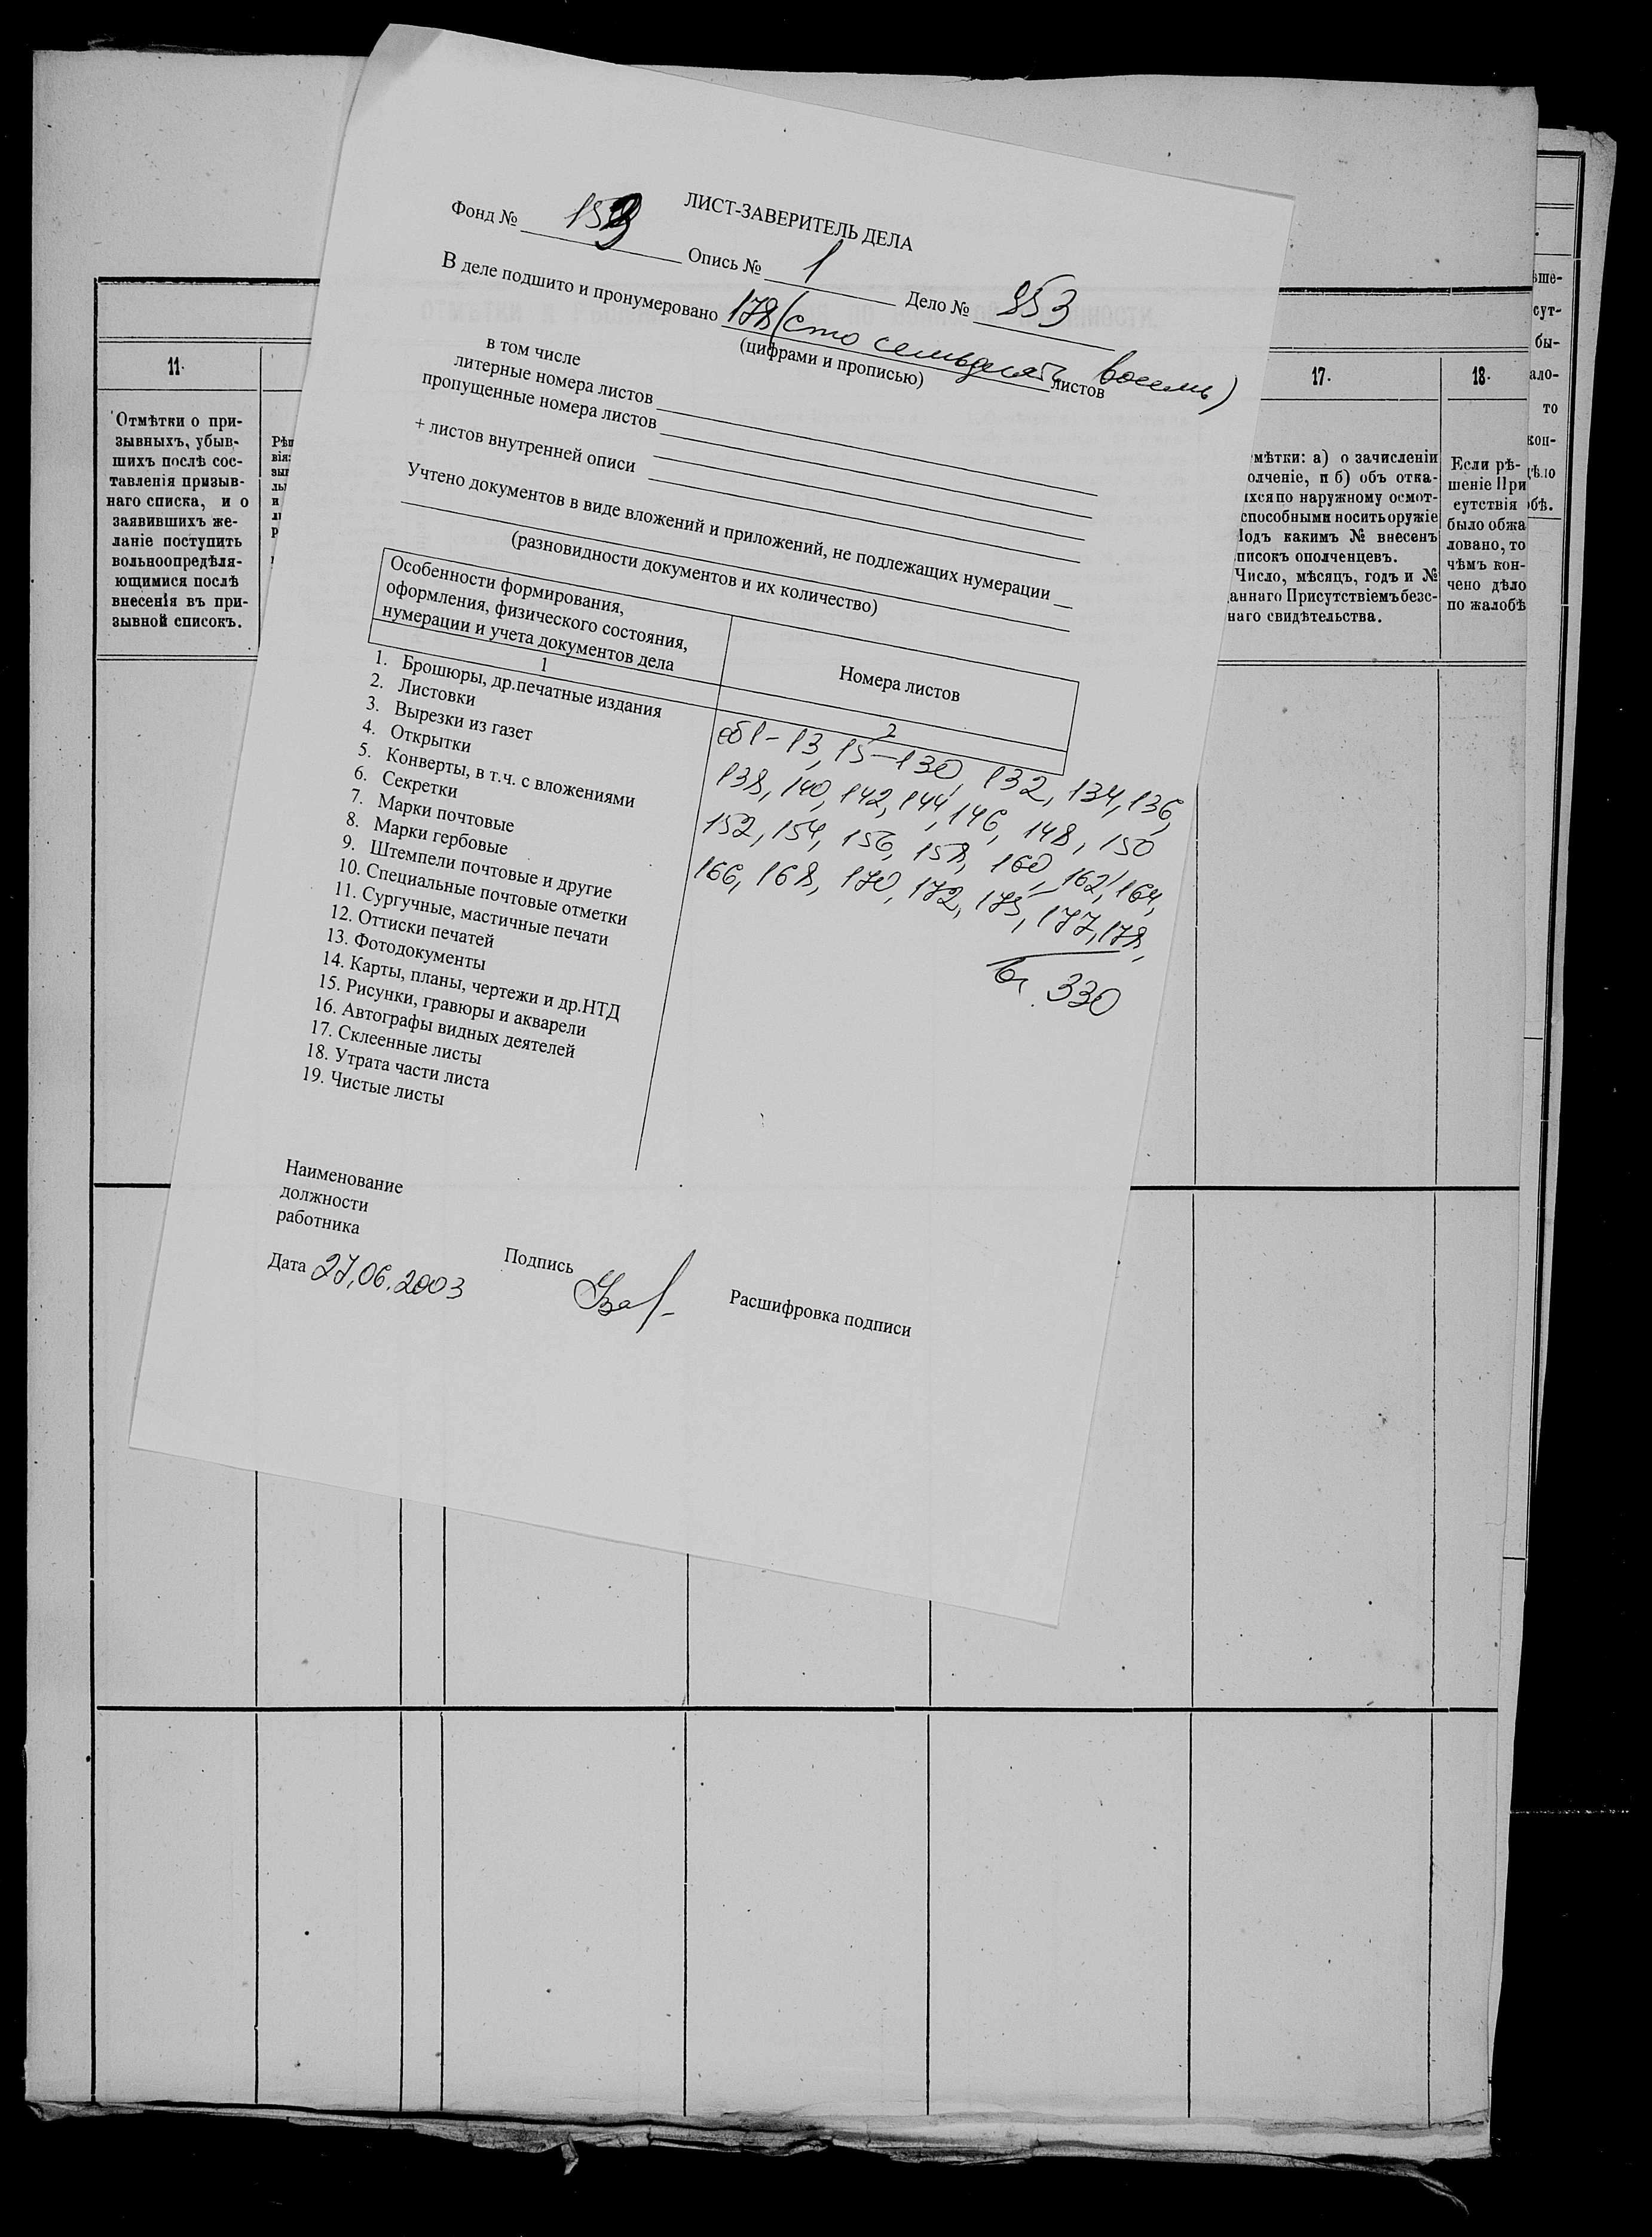 ЛИСТ-ЗАВЕРИТЕЛЬ ДЕЛА
Фонд № 153 Опись № 1 Дело № 853
В деле подшито и пронумеровано 178 (сто семьдесят восемь) листов
(цифрами и прописью)
в том числе
литерные номера листов
пропущенные номера листов
+ листов внутренней описи
Учтено документов в виде вложений и приложений, не подлежащих нумерации
(разновидности документов и их количество)
Особенности формирования,
оформления, физического состояния,
нумерации и учета документов дела
Номера листов
1
2
1. Брошюры, др.печатные издания
2. Листовки
3. Вырезки из газет
4. Открытки
5. Конверты, в т.ч. с вложениями
6. Секретки
7. Марки почтовые
8. Марки гербовые
9. Штемпели почтовые и другие
10. Специальные почтовые отметки
11. Сургучные, мастичные печати
12. Оттиски печатей
13. Фотодокументы
14. Карты, планы, чертежи и др.НТД
15. Рисунки, гравюры и акварели
16. Автографы видных деятелей
17. Склеенные листы
18. Утрата части листа
19. Чистые листы
об 1-13, 15-130, 132, 134, 136,
138, 140, 142, 144, 146, 148, 150
152, 154, 156, 158, 160, 162, 164,
166, 168, 170, 172, 175, 177, 178,
330
Наименование
должности
работника
Дата 27.06.2003
Подпись
Расшифровка подписи
11.
Отмѣтки о при-
зывныхъ, убыв-
шихъ послѣ сос-
тавленія призыв-
наго списка, и о
заявившихъ же-
ланіе поступить
вольноопредѣля-
ющимися послѣ
внесенія въ при-
зывной списокъ.
17.
мѣтки: а) о зачисленіи
олченіе, и б) объ отка-
ихся по наружному осмот-
способными носить оружіе
Подъ какимъ № внесенъ
писокъ ополченцевъ.
Число, мѣсяцъ, годъ и №
аннаго Присутствіемъ безс-
наго свидѣтельства.
18.
Если рѣ-
шеніе При
сутствія
было обжа
ловано, то
чѣмъ кон-
чено дѣло
по жалобѣ
ше-
сут-
бы-
ало-
то
кон-
дѣло
обѣ.